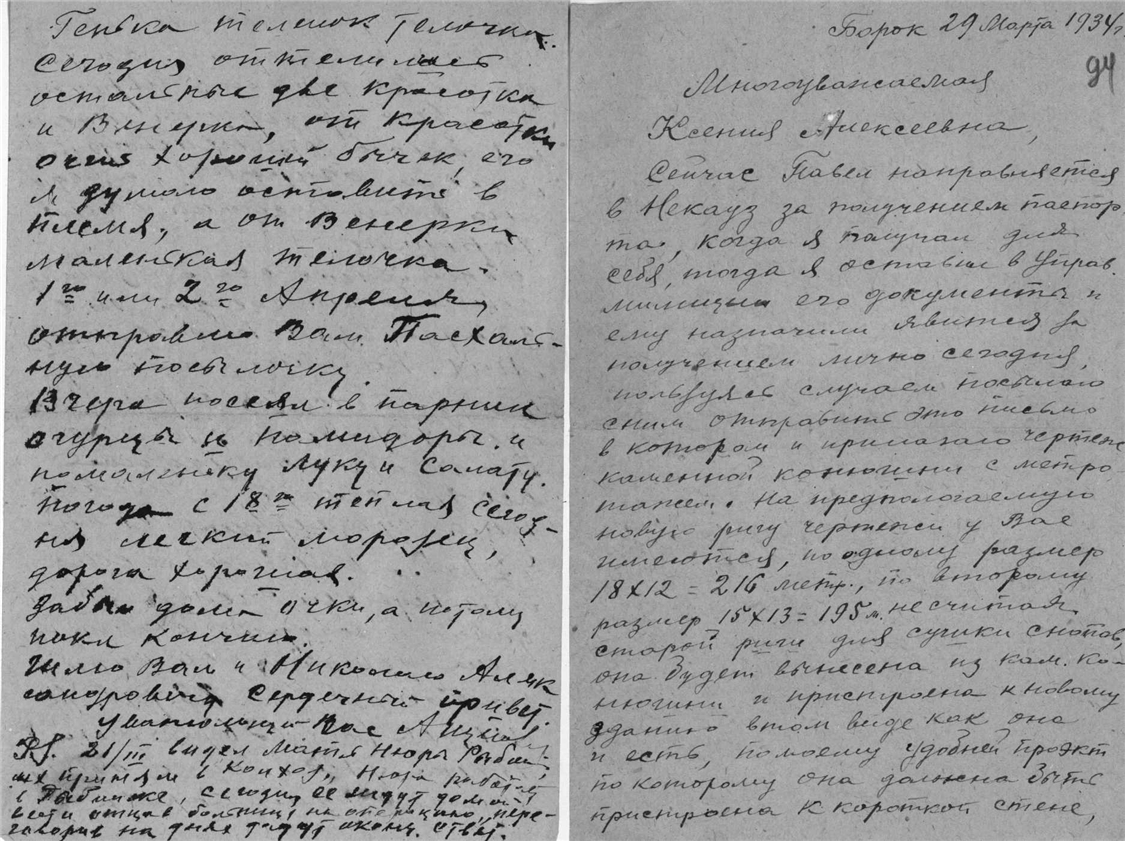 Генька теленок Телочка.
Сегодня отелились
остальные две красотка
и Венерка, от Красотки
очень хороший бычек, его
я думаю оставить в
племя, а от Венерки
маленькая телочка.
1го или 2го Апреля,
отправлю Вам Пасхаль-
ную посылочку.
Вчера посеял в парник
огурцы и помидоры и
помаленьку луку и салату.
Погода с 18го теплая сегод-
ня легкий морозец,
дорога хорошая.
Забыл дома очки, а потому
пока кончаю.
Шлю Вам и Николаю Алек
сандровичу сердечный привет.
Уважающий Вас
P.S. 21/III видел мать Нюры
их приняли в колхоз, Нюра работает
в сегодня ее ждут домой
вести отца в больницу на операцию, пере-
говорив на днях дадут оконч. ответ.
Борок 29 Марта 1934 г.
94
Многоуважаемая
Ксения Алексеевна,
Сейчас Павел направляется
в Некауз за получением паспор
та, когда я получал для
себя, тогда я оставил в Управ.
милиции его документы и
ему назначили явится за
получением лично сегодня,
пользуясь случаем посылаю
с ним отправить это письмо
в котором и прилагаю чертеж
каменной конюшни с метро
тажем. На предпологаемую
новую ригу чертежи у Вас
имеются, по одному размер
18х12 = 216 метр., по второму
размер 15х13 = 195 м. не считая
старой риги для сушки снопов,
она будет вынесена из кам. ко-
нюшни и пристроена к новому
зданию в том виде как она
и есть, помоему удобней проэкт
по которому она должна быть
пристроена к короткой стене,